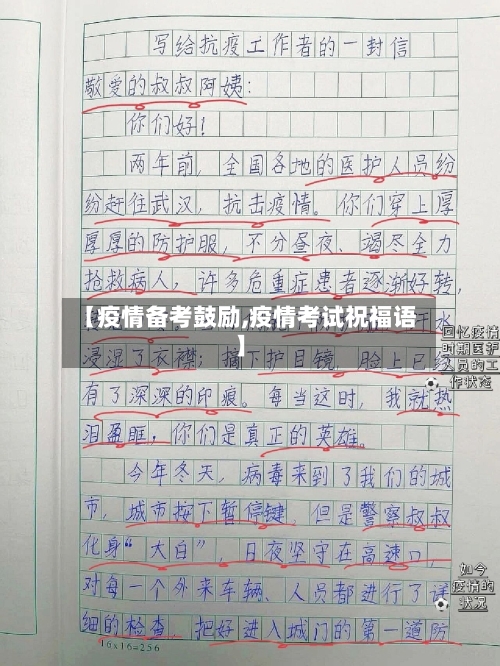 写给抗疫工作者的一封信
敬爱的叔叔阿姨：
你们好！
两年前，全国各地的医护人员纷
纷赶往武汉，抗击疫情。你们穿上厚
厚的防护服，不分昼夜、竭尽全力
抢救病人，许多危重症患者逐渐好转，
【疫情备考鼓励,疫情考试祝福语
】
汗水
回忆疫情
时期医护
人员的工
作状态
浸湿了衣襟；摘下护目镜，脸上已经
有了深深的印痕。每当这时，我就热
泪盈眶，你们是真正的英雄。
今年冬天，病毒来到了我们的城
市，城市按下暂停键，但是警察叔叔
化身“大白”，日夜坚守在高速口，
对每一个外来车辆、人员都进行了详
如今
疫情的
状况
细的检查，把好进入城门的第一道防
16x16=256